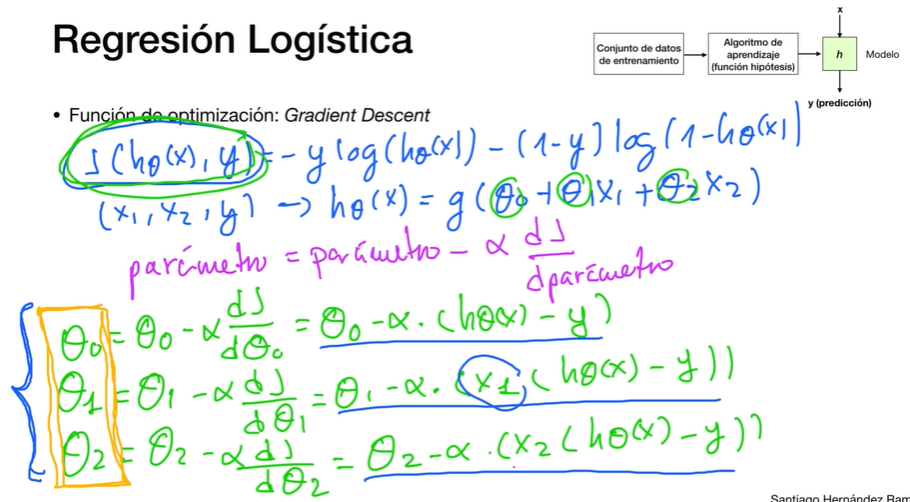 Regresión Logística
Conjunto de datos
de entrenamiento
Algoritmo de
aprendizaje
(función hipótesis)
x
h
Modelo
y (predicción)
• Función de optimización: Gradient Descent
J(hθ(x), y) = -y log(hθ(x)) - (1-y) log(1-hθ(x))
(x₁, x₂, y) → hθ(x) = g(θ₀ + θ₁x₁ + θ₂x₂)
parámetro = parámetro - α dJ/dparámetro
θ₀ = θ₀ - α dJ/dθ₀ = θ₀ - α · (hθ(x) - y)
θ₁ = θ₁ - α dJ/dθ₁ = θ₁ - α · (x₁(hθ(x) - y))
θ₂ = θ₂ - α dJ/dθ₂ = θ₂ - α · (x₂(hθ(x) - y))
Santiago Hernández Ram